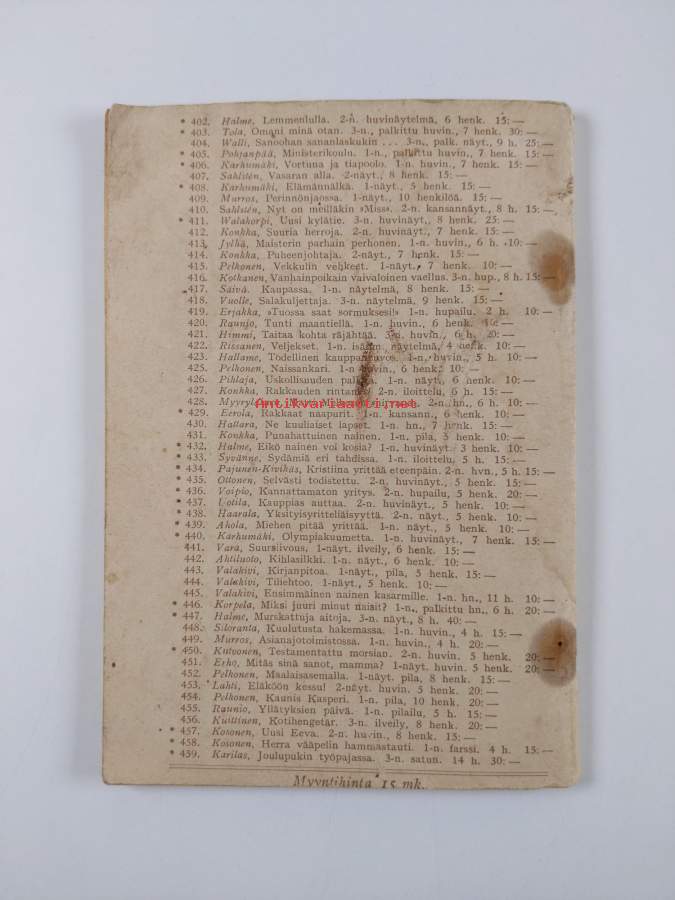 * 402. Halme, Lemmenlulla. 2-n. huvinäytelmä, 6 henk. 15: —
* 403. Tola, Omani minä otan. 3-n., palkittu huvin., 7 henk. 30: —
404. Walli, Sanoohan sananlaskukin . . . 3-n., palk. näyt., 9 h. 25: —
* 405. Pohjanpää, Ministerikoulu. 1-n., palkittu huvin., 7 henk. 15: —
* 406. Karhumäki, Vortuna ja tiapoolo. 1-n. huvin., 7 henk. 15: —
407. Sahlstén, Vasaran alla. 2-näyt., 8 henk. 15: —
* 408. Karhumäki, Elämännälkä. 1-näyt., 5 henk. 15: —
409. Murros, Perinnönjaossa. 1-näyt., 10 henkilöä. 15: —
410. Sahlstén, Nyt on meilläkin »Miss». 2-n. kansannäyt., 8 h. 15: —
* 411. Walakorpi, Uusi kylätie. 3-n. huvinäyt., 8 henk. 25: —
412. Konkka, Suuria herroja. 2-n. huvinäyt., 7 henk. 15: —
413. Jylhä, Maisterin parhain perhonen. 1-n. huvin., 6 h. 10: —
414. Konkka, Puheenjohtaja. 2-näyt., 7 henk. 15: —
415. Pelkonen, Vekkulin veljkeet. 1-näyt., 7 henk. 10: —
416. Kotkanen, Vanhainpoikain vaivaloinen vaellus. 3-n. hup., 8 h. 15: —
417. Säivä, Kaupassa. 1-n. näytelmä, 8 henk. 15: —
418. Vuolle, Salakuljettaja. 3-n. näytelmä, 9 henk. 15: —
419. Erjakka, »Tuossa saat sormuksesi!» 1-n. hupailu. 2 h. 10: —
420. Raunio, Tunti maantiellä. 1-n. huvin., 6 henk. 10: —
421. Himmi, Taitaa kohta räjähtää. 3-n. huvin., 6 h. 20: —
422. Rissanen, Veljekset. 1-n. isänm. näytelmä, 4 henk. 10: —
423. Hallame, Todellinen kauppaneuvos. 1-n. huvin., 5 h. 10: —
425. Pelkonen, Naissankari. 1-n huvin., 6 henk. 10: —
426. Pihlaja, Uskollisuuden palkka. 1-n. näyt., 6 henk. 10: —
427. Konkka, Rakkauden rintama. 2-n. iloittelu, 6 h. 15: —
428. 2-n. hn., 6 h. 10: —
Antikvariaatti.net
* 429. Eerola, Rakkaat naapurit. 1-n. kansann., 6 henk. 10: —
430. Hattara, Ne kuuliaiset lapset. 1-n. hn., 7 henk. 10: —
431. Konkka, Punahattuinen nainen. 1-n. pila, 5 henk. 10: —
* 432. Halme, Eikö nainen voi kosia? 1-n. huvinäyt. 3 henk. 10: —
* 433. Syvänne, Sydämiä eri tahdissa. 1-n. iloittelu, 5 h. 15: —
* 434. Pajunen-Kivikäs, Kristiina yrittää eteenpäin. 2-n. hvn., 5 h. 15: —
* 435. Ottonen, Selvästi todistettu. 2-n. huvinäyt., 5 henk. 15: —
* 436. Voipio, Kannattamaton yritys. 2-n. hupailu, 5 henk. 20: —
* 437. Uotila, Kauppias auttaa. 2-n. huvinäyt., 5 henk. 10: —
* 438. Haarala, Yksityisyritteliäisyyttä. 2-n. näyt., 5 henk. 10: —
* 439. Ahola, Miehen pitää yrittää. 1-n. näyt., 5 henk. 10: —
* 440. Karhumäki, Olympiakuumetta. 1-n. huvinäyt., 7 henk. 15: —
441. Vara, Suursiivous, 1-näyt. ilveily, 6 henk. 15: —
442. Ahtiluoto, Kihlasilkki. 1-n. näyt., 6 henk. 10: —
443. Valakivi, Kirjanpitoa. 1-näyt., pila, 5 henk. 15: —
444. Valakivi, Tiliehtoo. 1-näyt., 5 henk. 10: —
445. Valakivi, Ensimmäinen nainen kasarmille. 1-n. hn., 11 h. 10: —
* 446. Korpela, Miksi juuri minut naisit? 1-n., palkittu hn., 6 h. 20: —
* 447. Halme, Murskattuja aitoja. 3-n. näyt., 8 h. 40: —
448. Siloranta, Kuulutusta hakemassa. 1-n. huvin., 4 h. 15: —
449. Murros, Asianajotoimistossa. 1-n. huvin., 4 h. 20: —
* 450. Kutvonen, Testamentattu morsian. 2-n. huvin. 5 henk. 20: —
451. Erho, Mitäs sinä sanot, mamma? 1-näyt. huvin. 5 henk. 20: —
452. Pelkonen, Maalaisasemalla. 1-näyt. pila, 8 henk. 15: —
453. Lahti, Eläköön kessu! 2-näyt. huvin. 5 henk. 20: —
454. Pelkonen, Kaunis Kasperi. 1-n. pila, 10 henk. 20: —
455. Raunio, Yllätyksien päivä. 1-n. pilailu, 5 h. 15: —
456. Kuittinen, Kotihengetär. 3-n. ilveily, 8 henk. 20: —
* 457. Kosonen, Uusi Eeva. 2-n. huvin., 8 henk. 15: —
* 458. Kosonen, Herra vääpelin hammastauti. 1-n. farssi. 4 h. 15: —
* 459. Karilas, Joulupukin työpajassa. 3-n. satun. 14 h. 30: —
Myyntihinta 15 mk.